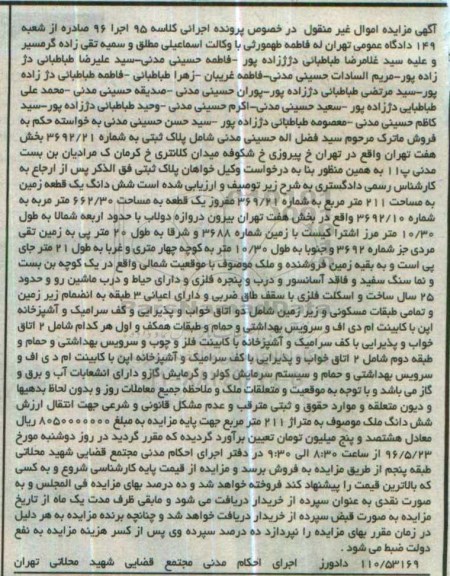 آگهی مزایده اموال غیر منقول در خصوص پرونده اجرائی کلاسه ۹۵ اجرا ۹۶ صادره از شعبه
۱۴۹ دادگاه عمومی تهران له فاطمه طهمورثی با وکالت اسماعیلی مطلق و سمیه تقی زاده گرمسیر
و علیه سید غلامرضا طباطبائی دژژزاده پور -فاطمه حسینی مدنی-سید علیرضا طباطبائی دژ
زاده پور-مریم السادات حسینی مدنی-فاطمه غریبان -زهرا طباطبائی -فاطمه طباطبائی دژ زاده
پور-سید مرتضی طباطبائی دژزاده پور-پوران حسینی مدنی -صدیقه حسینی مدنی -محمد علی
طباطبایی دژزاده پور -سعید حسینی مدنی-اکرم حسینی مدنی -وحید طباطبائی دژزاده پور-سید
کاظم حسینی مدنی -معصومه طباطبائی دژزاده پور -سید حسن حسینی مدنی به خواسته حکم به
فروش ماترک مرحوم سید فضل اله حسینی مدنی شامل پلاک ثبتی به شماره ۳۶۹۲/۲۱ بخش
هفت تهران واقع در تهران خ پیروزی خ شکوفه میدان کلانتری خ کرمان ک مرادیان بن بست
مدنی پ۱۱ به همین منظور بنا به درخواست وکیل خواهان پلاک ثبتی فق الذکر پس از ارجاع به
کارشناس رسمی دادگستری به شرح زیر توصیف و ارزیابی شده است شش دانگ یک قطعه زمین
به مساحت ۲۱۱ متر مربع به شماره ۳۶۹/۲۱ مفروز یک قطعه به مساحت ۶۶۲/۳۰ متر مربع به
شماره ۳۶۹۲/۱۰ واقع در بخش هفت تهران بیرون دروازه دولاب با حدود اربعه شمالا به طول
۱۰/۳۰ متر اشترا کیست با زمین شماره ۳۶۸۸ و شرقا به طول ۲۰ متر پی به زمین تقی
مردی جز شماره ۳۶۹۲ و جنوبا به طول ۱۰/۳۰ متر به کوچه چهار متری و غربا به طول ۲۱ متر جای
پی است و به بقیه زمین فروشنده و ملک موصوف با موقعیت شمالی واقع در یک کوچه بن بست
و نما سنگ سفید و فاقد آسانسور و درب و پنجره فلزی و دارای حیاط و درب ماشین رو و حدود
۲۵ سال ساخت و اسکلت فلزی با سقف طاق ضربی و دارای اعیانی ۳ طبقه به انضمام زیر زمین
و تمامی طبقات مسکونی و زیر زمین شامل دو اتاق خواب و پذیرایی و کف سرامیک و آشپزخانه
اپن با کابینت ام دی اف و سرویس بهداشتی و حمام و طبقات همکف و اول هر کدام شامل ۲ اتاق
خواب و پذیرایی با کف سرامیک و آشپزخانه با کابینت فلز و چوب و سرویس بهداشتی و حمام و
طبقه دوم شامل ۲ اتاق خواب و پذیرایی با کف سرامیک و آشپزخانه اپن با کابینت ام د ی اف و
سرویس بهداشتی و حمام و سیستم سرمایش کولر و گرمایش گازو دارای انشعابات آب و برق و
گاز می باشد و با توجه به موقعیت و متعلقات ملک و ملاحظه جمیع معاملات روز و بدون لحاظ بدهیها
و دیون متعلقه و موارد حقوق و ثبتی مترقب و عدم مشکل قانونی و شرعی جهت انتقال ارزش
شش دانگ ملک موصوف به متراژ ۲۱۱ متر مربع جهت پایه مزایده به مبلغ ۸۰۵۰۰۰۰۰۰۰ ریال
معادل هشتصد و پنج میلیون تومان تعیین برآورد گردیده که مقرر گردید در روز دوشنبه مورخ
۹۶/۵/۲۳ از ساعت ۸:۳۰ الی ۹:۳۰ در دفتر اجرای احکام مدنی مجتمع قضایی شهید محلاتی
طبقه پنجم از طریق مزایده به فروش برسد و مزایده از قیمت پایه کارشناسی شروع و به کسی
که بالاترین قیمت را پیشنهاد کند فروخته خواهد شد و ده درصد بهای مزایده فی المجلس و به
صورت نقدی به عنوان سپرده از خریدار دریافت می شود و مابقی ظرف مدت یک ماه از تاریخ
مزایده به صورت قبض سپرده از خریدار دریافت خواهد شد و چنانچه برنده مزایده به هر دلیل
در زمان مقرر بهای مزایده را نپردازد ده درصد سپرده وی پس از کسر هزینه مزایده به نفع
دولت ضبط می شود .
۱۱۰/۵۳۱۶۹ دادورز اجرای احکام مدنی مجتمع قضایی شهید محلاتی تهران